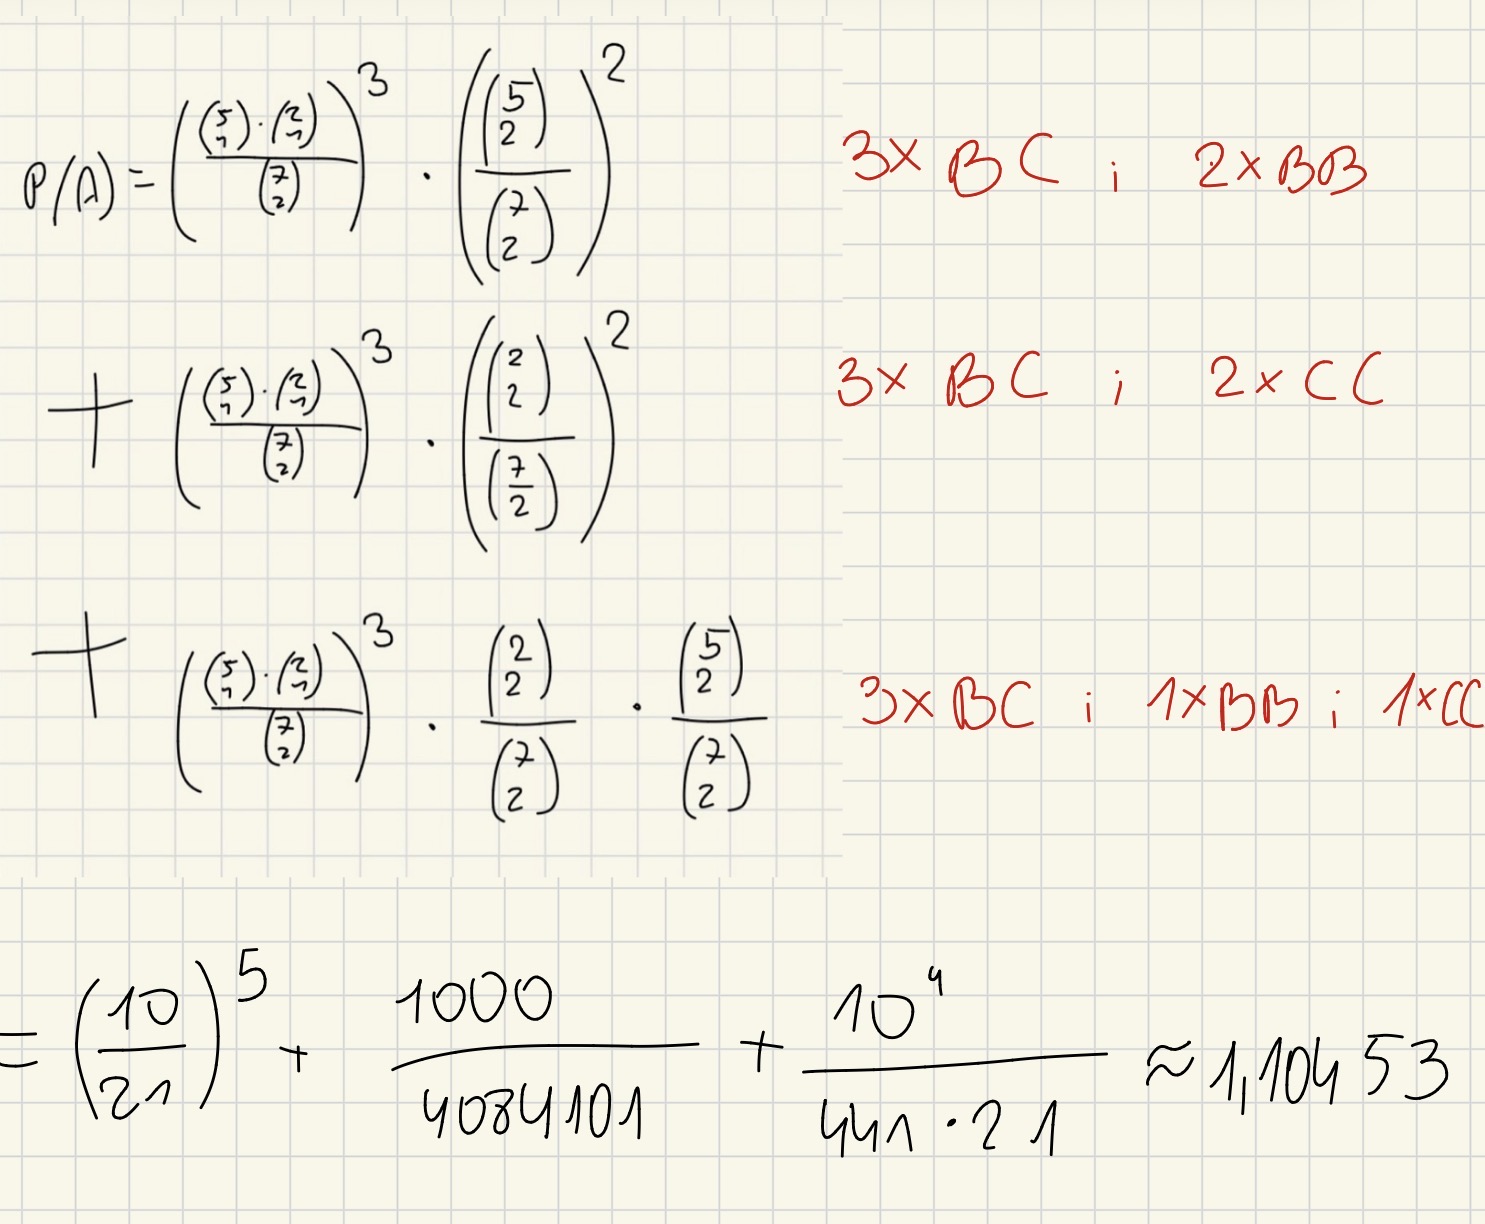 P(A) = ((5 1) · (2 1) / (7 2))^3 · ((5 2) / (7 2))^2 3× BC i 2×BB
+ ((5 1) · (2 1) / (7 2))^3 · ((2 2) / (7/2))^2 3× BC i 2×CC
+ ((5 1) · (2 1) / (7 2))^3 · (2 2) / (7 2) · (5 2) / (7 2) 3×BC i 1×BB i 1×CC
= (10/21)^5 + 1000/4084101 + 10^4/441·21 ≈ 1,10453